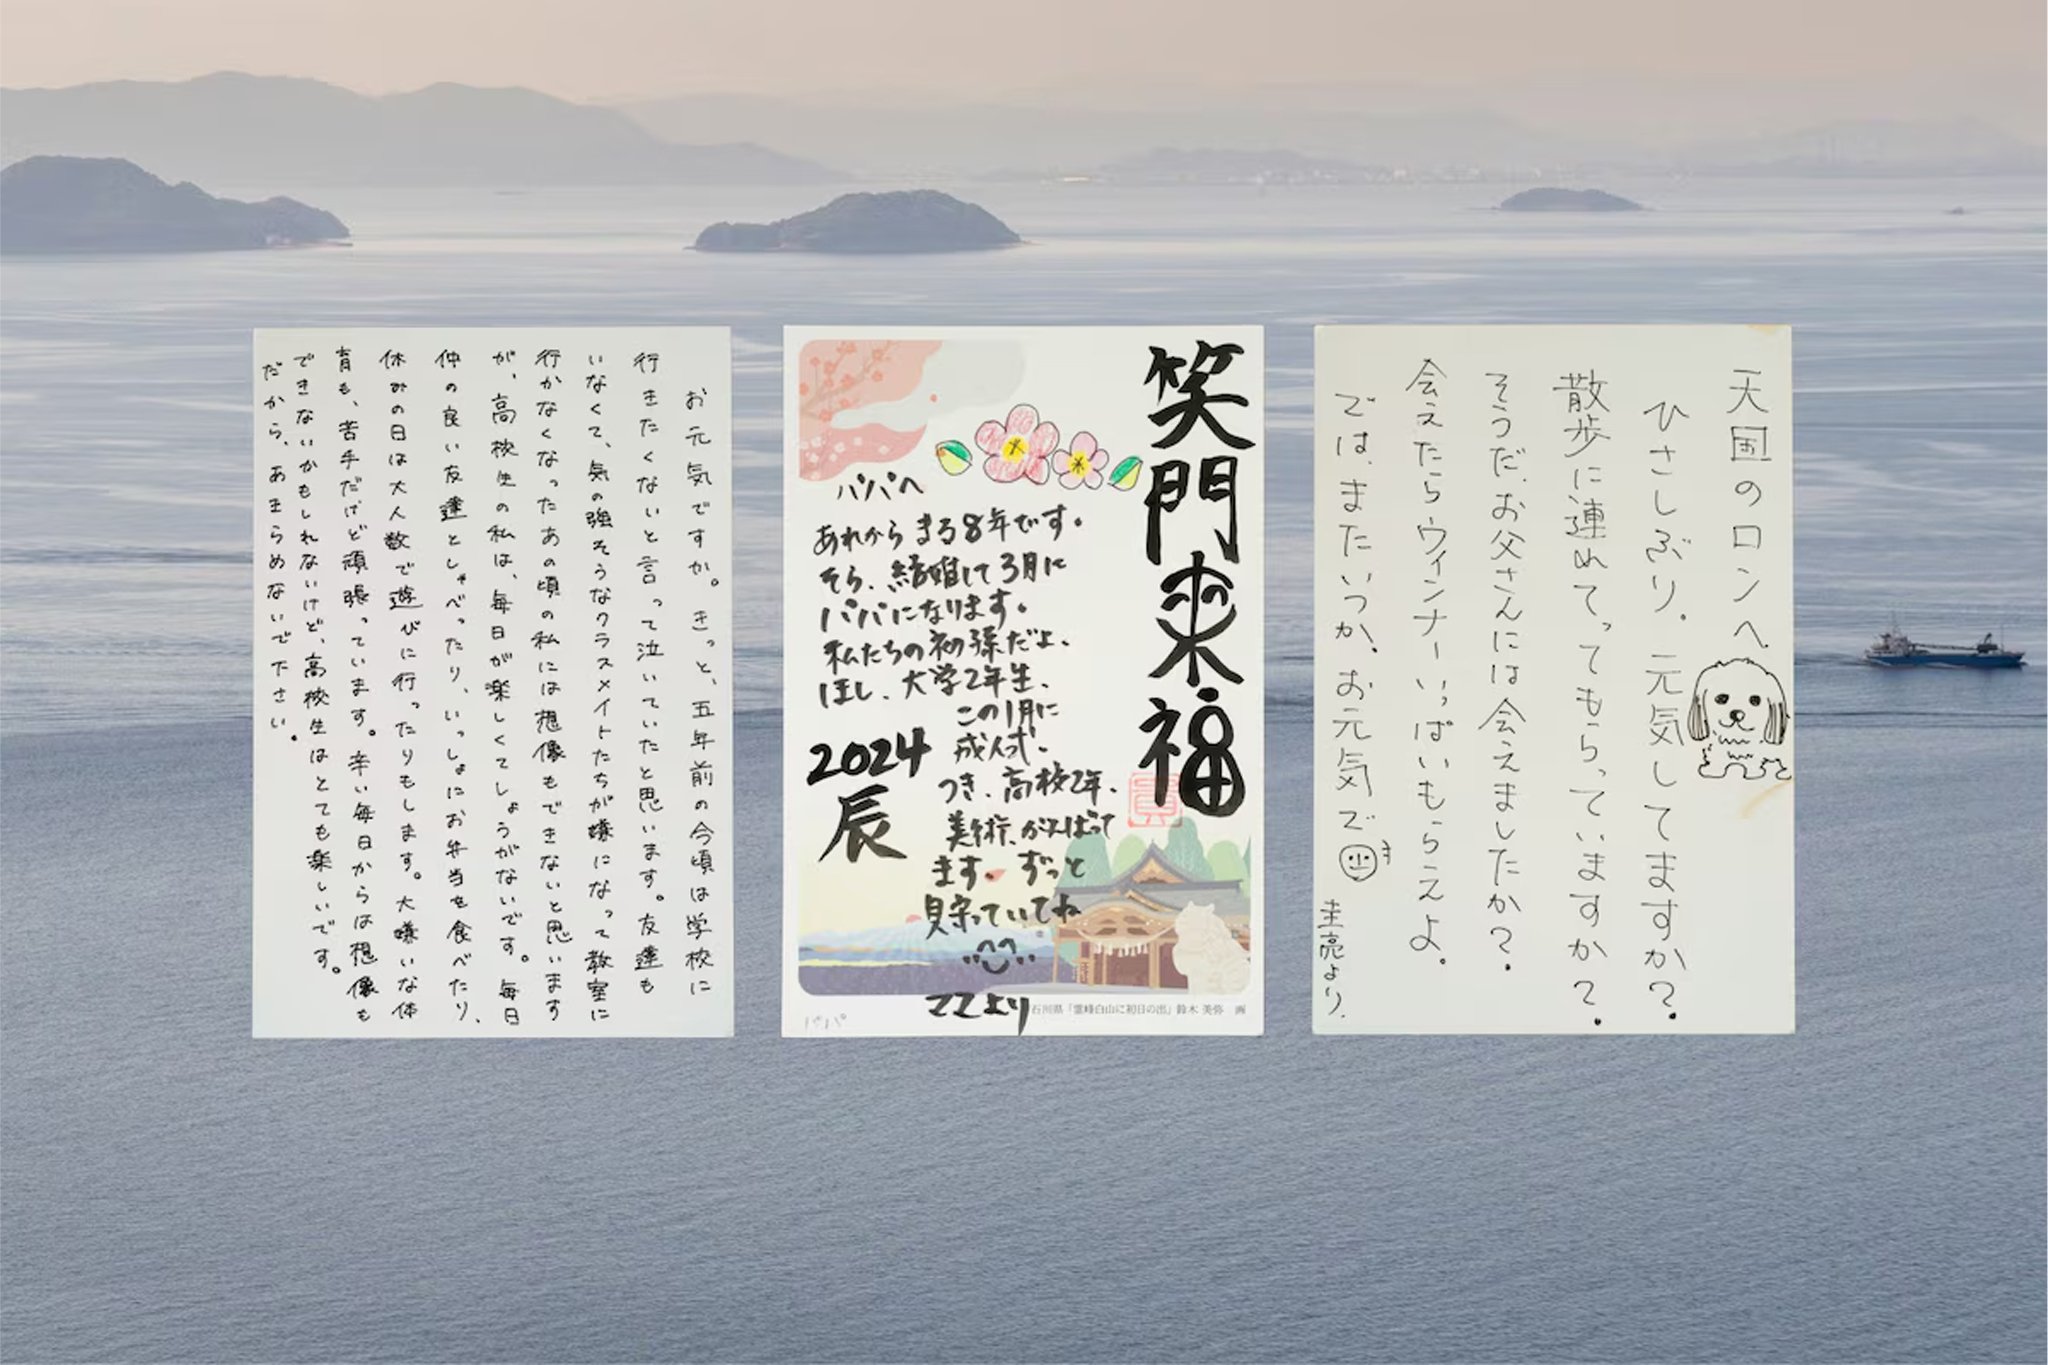 お元気ですか。きっと、五年前の今頃は学校に
行きたくないと言って泣いていたと思います。友達も
いなくて、気の強そうなクラスメイトたちが嫌になって教室に
行かなくなったあの頃の私には想像もできないと思います
が、高校生の私は、毎日が楽しくてしょうがないです。毎日
仲の良い友達としゃべったり、いっしょにお弁当を食べたり、
休みの日は大人数で遊びに行ったりもします。大嫌いな体
育も、苦手だけど頑張っています。辛い毎日からは想像も
できないかもしれないけど、高校生はとても楽しいです。
だから、あきらめないで下さい。
笑門来福
パパへ
あれからまる8年です。
そら、結婚して3月に
パパになります。
私たちの初孫だよ、
ほし、大学2年生、
この1月に
成人式、
つき、高校2年、
美術、がんばって
ます。ずっと
見守っていてね
ママより
2024
辰
石川県「霊峰白山に初日の出」鈴木 美弥 画
パパ
天国のロンへ
ひさしぶり。元気してますか?
散歩に連れてってもらっていますか?
そうだ、お父さんには会えましたか?
会えたらウィンナーいっぱいもらえよ。
では、またいつか、お元気で
圭亮より